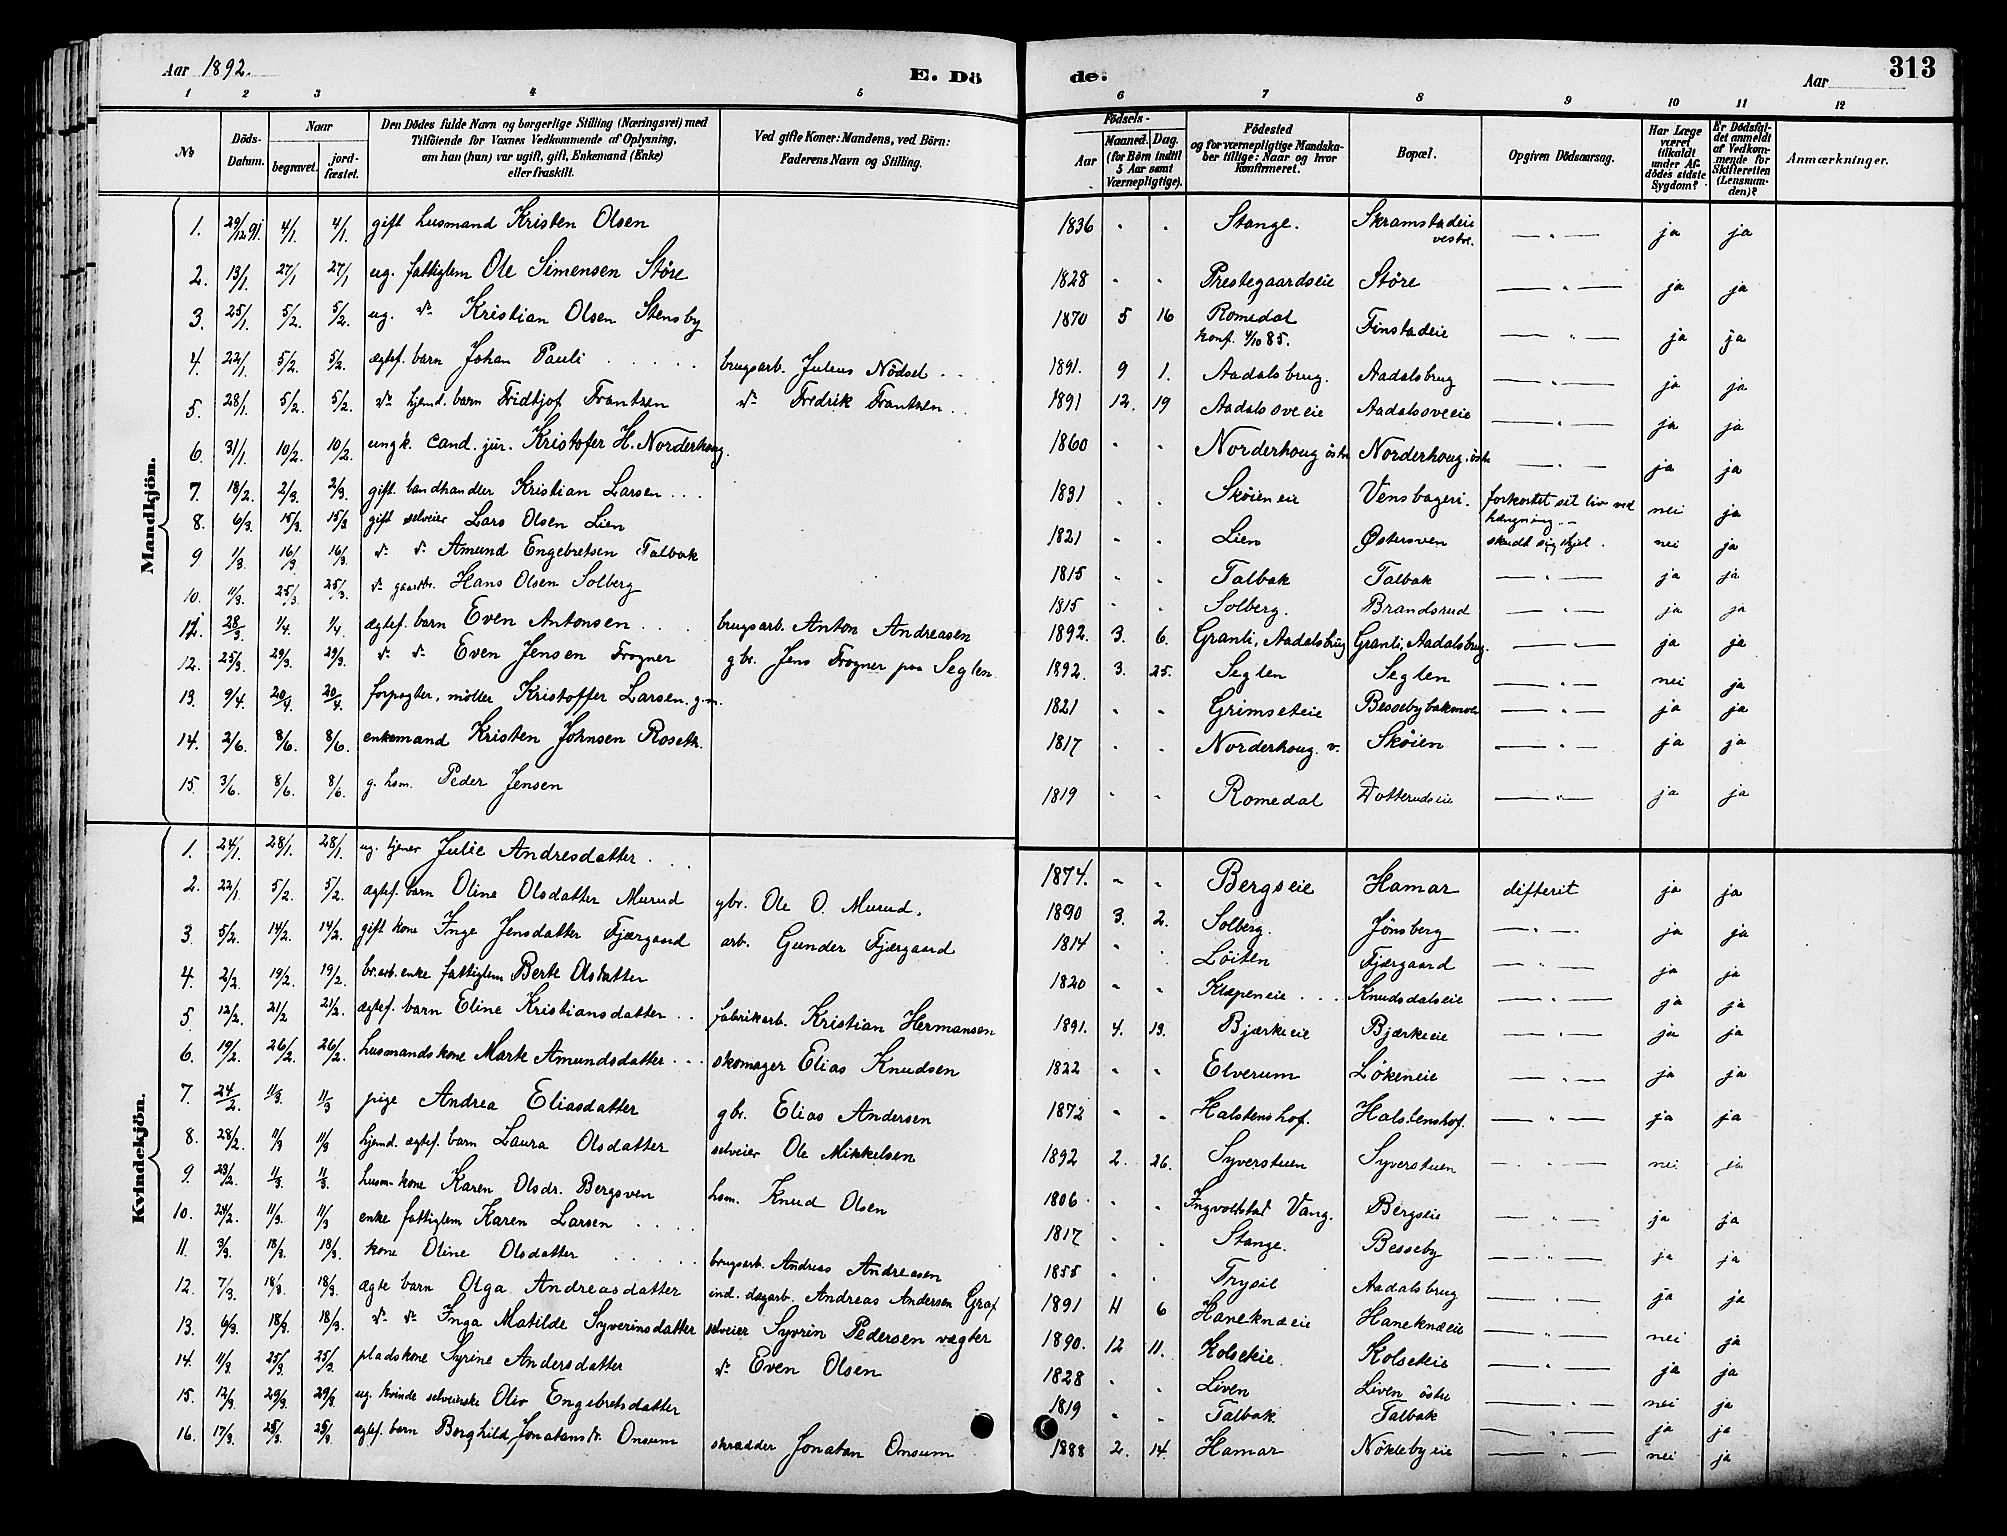 Aar 1892. E. Döde. Aar 313
1 2 3 4 5 6 7 8 9 10 11 12
No
Döds-Datum.
Naar
begravet.
jord-fæstet.
Den Dödes fulde Navn og borgerlige Stilling (Næringsvei) med
Tilföiende for Voxnes Vedkommende af Oplysning,
om han (hun) var ugift, gift, Enkemand (Enke)
eller fraskilt.
Ved gifte Koner: Mandens, ved Börn:
Faderens Navn og Stilling.
Födsels-
Aar
Maaned. Dag.
(for Børn indtil
5 Aar samt
Værnepligtige).
Födested
og for værnepligtige Mandska-
ber tillige: Naar og hvor
konfirmeret.
Bopæl.
Opgiven Dödsaarsag.
Har Læge
været
tilkaldt
under Af-
dödes sidste
Sygdom?
Er Dödsfal-
det anmeldt
af Vedkom-
mende for
Skifteretten
(Lensman-
den)?
Anmærkninger.
Mandkjön.
1. 29/12 91. 4/1. 4/1. gift husmand Kristen Olsen 1836 " " Stange. Skramstadeie vestre. — " — ja ja
2. 13/1. 27/1 27/1 ug. fattiglem Ole Simensen Støre 1828 " " Prestegaardseie Støre — " — ja ja
3. 25/1. 5/2. 5/2. ug. do Kristian Olsen Stensby 1870 5 16 Romedal konf. 4/10 85. Finstadeie — " — ja ja
4. 22/1. 5/2. 5/2. ægtef. barn Johan Pauli brugsarb. Julius Nödsel 1891. 9 1. Aadalsbrug. Aadalsbrug — " — ja ja
5. 28/1. 5/2. 5/2. do hjemd. barn Fridtjof Frantzen do Fredrik Frantzen 1891 12. 19 Aadalsoveeie Aadalsoveeie — " — ja ja
6. 31/1. 10/2. 10/2. ungk. cand. jur. Kristofer H. Norderhoug. 1860 " " Norderhoug östre Norderhoug. östre — " — ja ja
7. 18/2. 2/3. 2/3. gift. landhandler Kristian Larsen 1831 " " Skøieneie Vensbageri. forkortet sit liv ved hængning. nei ja
8. 6/3. 15/3. 15/3 gift selveier Lars Olsen Lien 1821 " " Lien Østersven skudt sig ihjel. nei ja
9 1/3. 16/3 16/3 do do Amund Engebretsen Talbak 1815 " " Talbak Talbak — " — ja ja
10. 11/3. 25/3 25/3. do gaardbr. Hans Olsen Solberg 1815 " " Solberg. Brandsrud — " — ja ja
11. 28/3. 1/4. 1/4. ægtef. barn Even Antonsen brugsarb. Anton Andreasen 1892. 3. 6. Granli, Aadalsbrug Granli, Aadalsbrug. — " — ja ja
12. 25/3 29/3. 29/3. do do Even Jensen Frogner gbr. Jens Frogner paa Seglen. 1892 3. 25. Seglen Seglen — " — nei ja
13. 9/4. 20/4. 20/4 forpagter, møller Kristoffer Larsen. g.m. 1821 " " Grimseteie Bessebybakmoen — " — ja ja
14. 2/6. 8/6. 8/6. enkemand Kristen Johnsen Roseth. 1817 " " Norderhoug. v. Skøien — " — ja ja
15. 3/6. 8/6. 8/6. g. hsm. Peder Jensen 1819 " " Romedal Dotterudseie — " — ja ja
Kvindekjön.
1. 24/1. 28/1. 28/1. ug. tjener Julie Andresdatter 1874. " " Bergseie Hamar difterit ja ja
2. 22/1 5/2. 5/2. ægtef. barn Oline Olsdatter Murud gbr. Ole O. Murud. 1890 3. 2. Solberg. Jönsberg — " — ja ja
3. 5/2. 14/2. 14/2. gift kone Inge Jensdatter Fjærgaard arb. Gunder Fjærgaard 1814 " " Löiten Fjærgaard — " — ja ja
4. 2/2. 19/2. 19/2. br.arb. enke fattiglem Berte Olsdatter 1820 " " Klæpeneie Knudsdalseie — " — ja ja
5 12/2. 21/2 21/2. ægtef. barn Eline Kristiansdatter fabrikarb. Kristian Hermansen 1891. 4. 13. Bjærkeeie Bjærkeeie — " — ja ja
6. 19/2. 26/2. 26/2. husmandskone Marte Amundsdatter skomager Elias Knudsen 1822 " " Elverum Lökeneie — " — ja ja
7. 24/2. 11/3. 11/3 pige Andrea Eliasdatter gbr. Elias Andersen 1872 " " Halstenshof. Halstenshof. — " — ja ja
8. 28/2. 11/3 11/3 hjemd. ægtef. barn Laura Olsdatter selveier Ole Mikkelsen 1892 2. 26. Syverstuen Syverstuen — " — nei ja
9. 23/2. 11/3. 11/3. husm-kone Karen Olsdr. Bergsven hsm. Knud Olsen 1806 " " Ingvoldstad Vang. Bergseie — " — ja ja
10. 24/2. 11/3. 11/3 enke fattiglem Karen Larsen 1817 " " Stange. Besseby — " — ja ja
11. 3/3. 18/3. 18/3. kone Oline Olsdatter brugsarb. Andreas Andreasen 1855 " " Trysil Aadalsbrug — " — ja ja
12. 7/3. 18/3. 18/3. ægte barn Olga Andreasdatter ind. dagarb. Andreas Andersen Graf 1891 4 6 Haneknæeie Haneknæeie — " — nei ja
13. 6/3. 18/3. 18/3. do do Inga Matilde Syverinsdatter selveier Syvrin Pedersen vægter 1890. 12 11. Kolseteie. Kolseteie — " — ja ja
14. 11/3. 25/3 25/3. pladskone Syrine Andersdatter do Even Olsen 1828 " " Liven Liven östre — " — nei ja
15. 12/3. 29/3. 29/3. ug. kvinde selveierske Oliv Engebretsdatter 1819 " " Talbak Talbak — " — ja ja
16. 17/3. 25/3. 25/3. ægtef. barn Borghild Jonatansdr. Onsum skrædder Jonatan Onsum 1888 2. 14. Hamar Nöklebyeie — " — nei ja